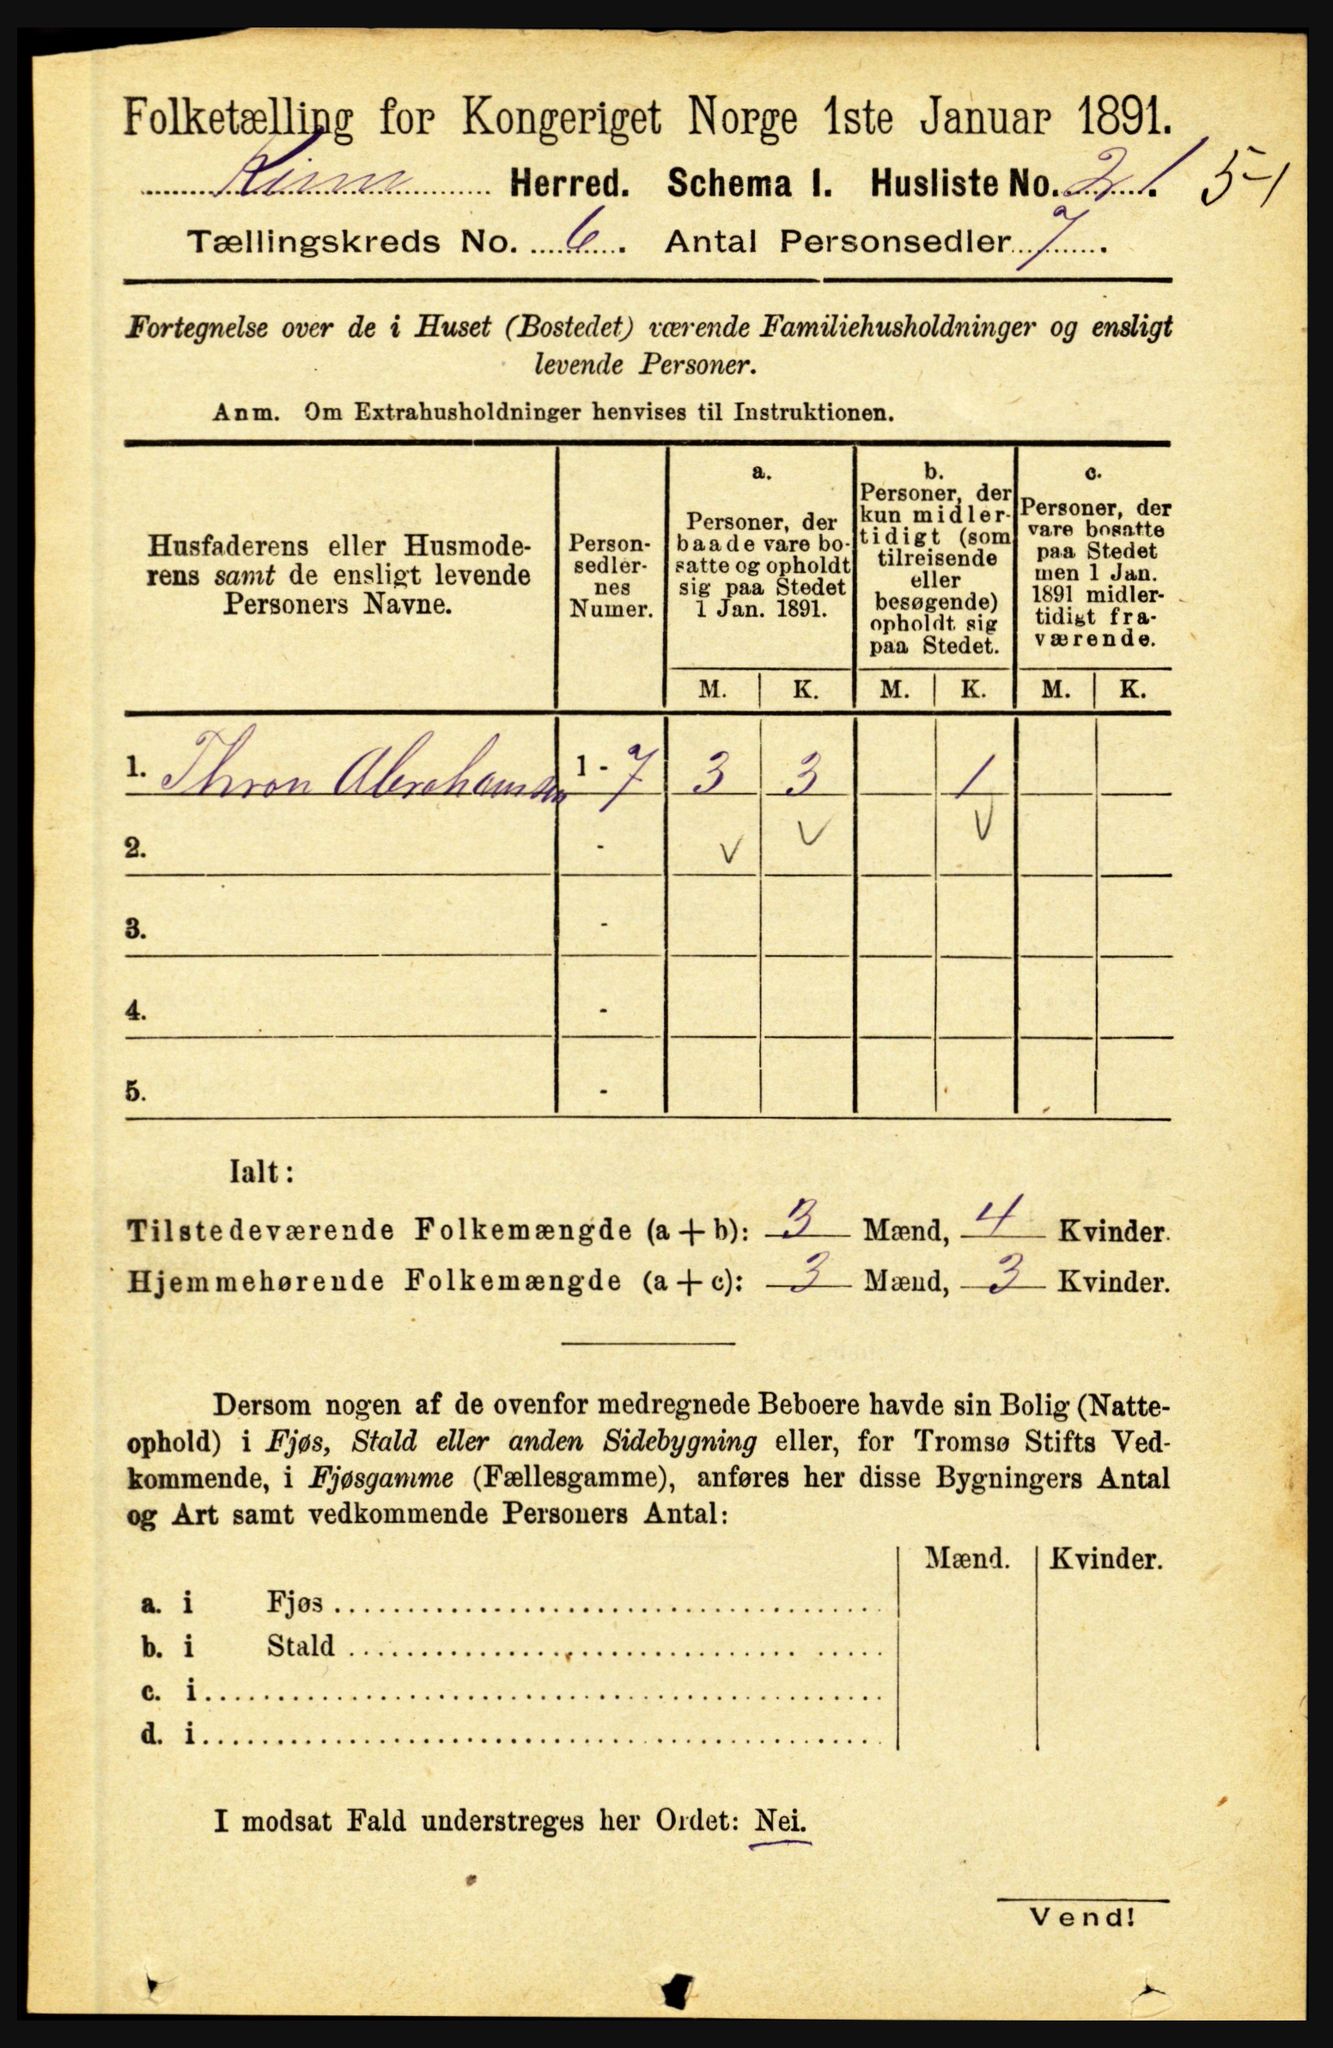 Folketælling for Kongeriget Norge 1ste Januar 1891.
Kinn Herred. Schema I. Husliste No. 21. 51
Tællingskreds No. 6. Antal Personsedler 7.
Fortegnelse over de i Huset (Bostedet) værende Familiehusholdninger og ensligt
levende Personer.
Anm. Om Extrahusholdninger henvises til Instruktionen.
Husfaderens eller Husmode-
rens samt de ensligt levende
Personers Navne.
Person-
sedler-
nes
Numer.
a.
Personer, der
baade vare bo-
satte og opholdt
sig paa Stedet
1 Jan. 1891.
b.
Personer, der
kun midler-
tidigt (som
tilreisende
eller
besøgende)
opholdt sig
paa Stedet.
c.
Personer, der
vare bosatte
paa Stedet
men 1 Jan.
1891 midler-
tidigt fra-
værende.
M. K. M. K. M. K.
1. Thron Abrahamsen 1 - 7 3 3 1
2. - V V V
3. -
4. -
5. -
Ialt:
Tilstedeværende Folkemængde (a + b): 3 Mænd, 4 Kvinder.
Hjemmehørende Folkemængde (a + c): 3 Mænd, 3 Kvinder.
Dersom nogen af de ovenfor medregnede Beboere havde sin Bolig (Natte-
ophold) i Fjøs, Stald eller anden Sidebygning eller, for Tromsø Stifts Ved-
kommende, i Fjøsgamme (Fællesgamme), anføres her disse Bygningers Antal
og Art samt vedkommende Personers Antal:
Mænd. Kvinder.
a. i Fjøs
b. i Stald
c. i
d. i
I modsat Fald understreges her Ordet: Nei.
Vend!